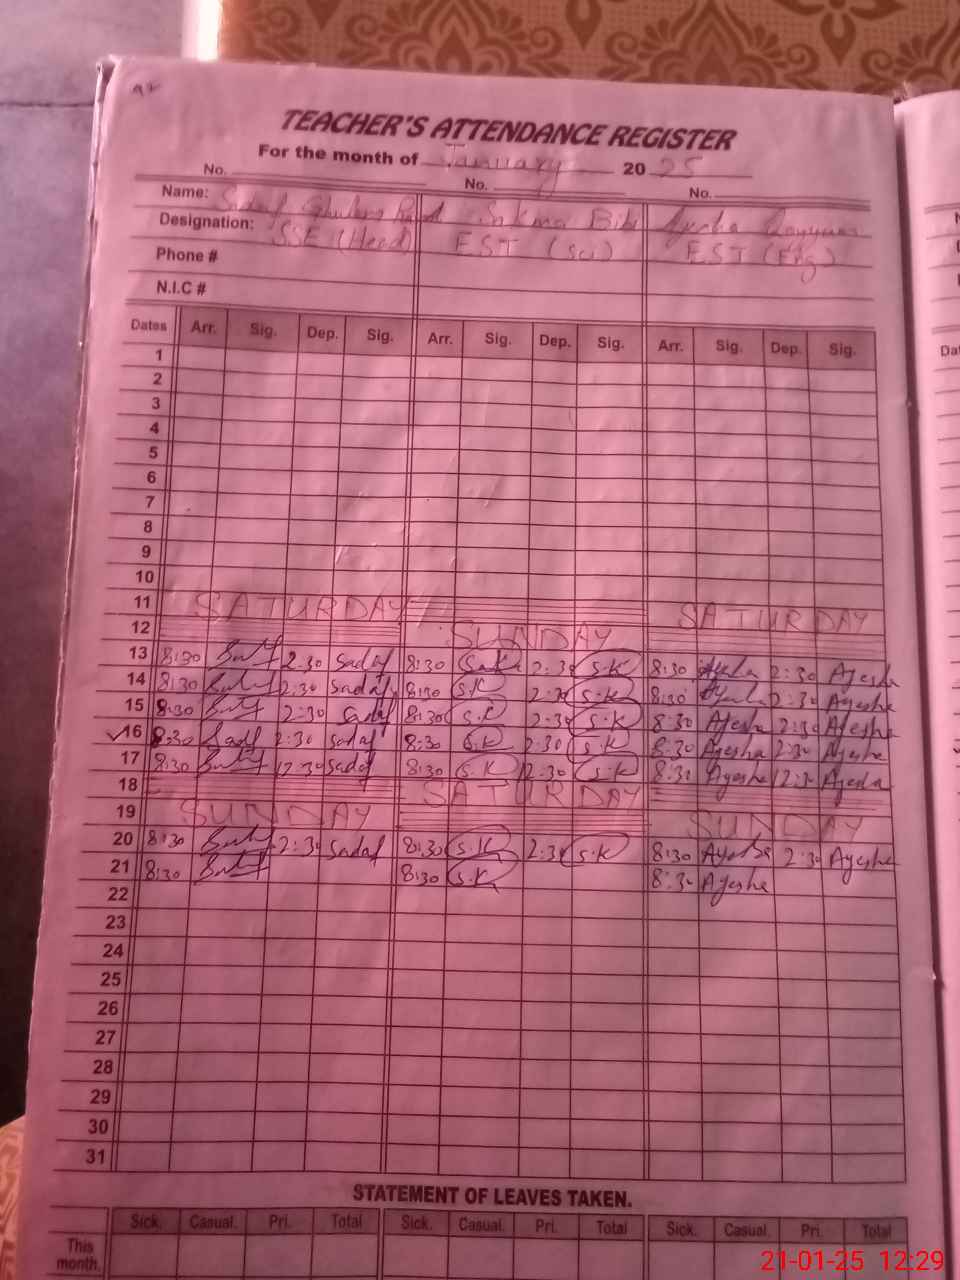 TEACHER'S ATTENDANCE REGISTER
For the month of January 2025
No. No. No.
Name: Sadaf Ghulam Sakina Bibi Ayesha Qayyum
Designation: SSE (Head) EST (Sci) EST (Eng)
Phone #
N.I.C #
Dates Arr. Sig. Dep. Sig. Arr. Sig. Dep. Sig. Arr. Sig. Dep. Sig.
1
2
3
4
5
6
7
8
9
10
11 SATURDAY SATURDAY
12 SUNDAY
13 8:30 2:30 Sadaf 8:30 2:30 S.K 8:30 Ayesha 2:30 Ayesha
14 8:30 2:30 Sadaf 8:30 S.K 2:30 S.K 8:30 Ayesha 2:30 Ayesha
15 8:30 2:30 Sadaf 8:30 S.K 2:30 S.K 8:30 Ayesha 2:30 Ayesha
16 8:30 Sadaf 2:30 Sadaf 8:30 S.K 2:30 S.K 8:30 Ayesha 2:30 Ayesha
17 8:30 12:30 Sadaf 8:30 S.K 12:30 S.K 8:30 Ayesha 12:30 Ayesha
18 SATURDAY
19 SUNDAY SUNDAY
20 8:30 2:30 Sadaf 8:30 S.K 2:30 S.K 8:30 Ayesha 2:30 Ayesha
21 8:30 8:30 S.K 8:30 Ayesha
22
23
24
25
26
27
28
29
30
31
STATEMENT OF LEAVES TAKEN.
Sick. Casual. Pri. Total Sick. Casual. Pri. Total Sick. Casual. Pri. Total
This month.
21-01-25 12:29